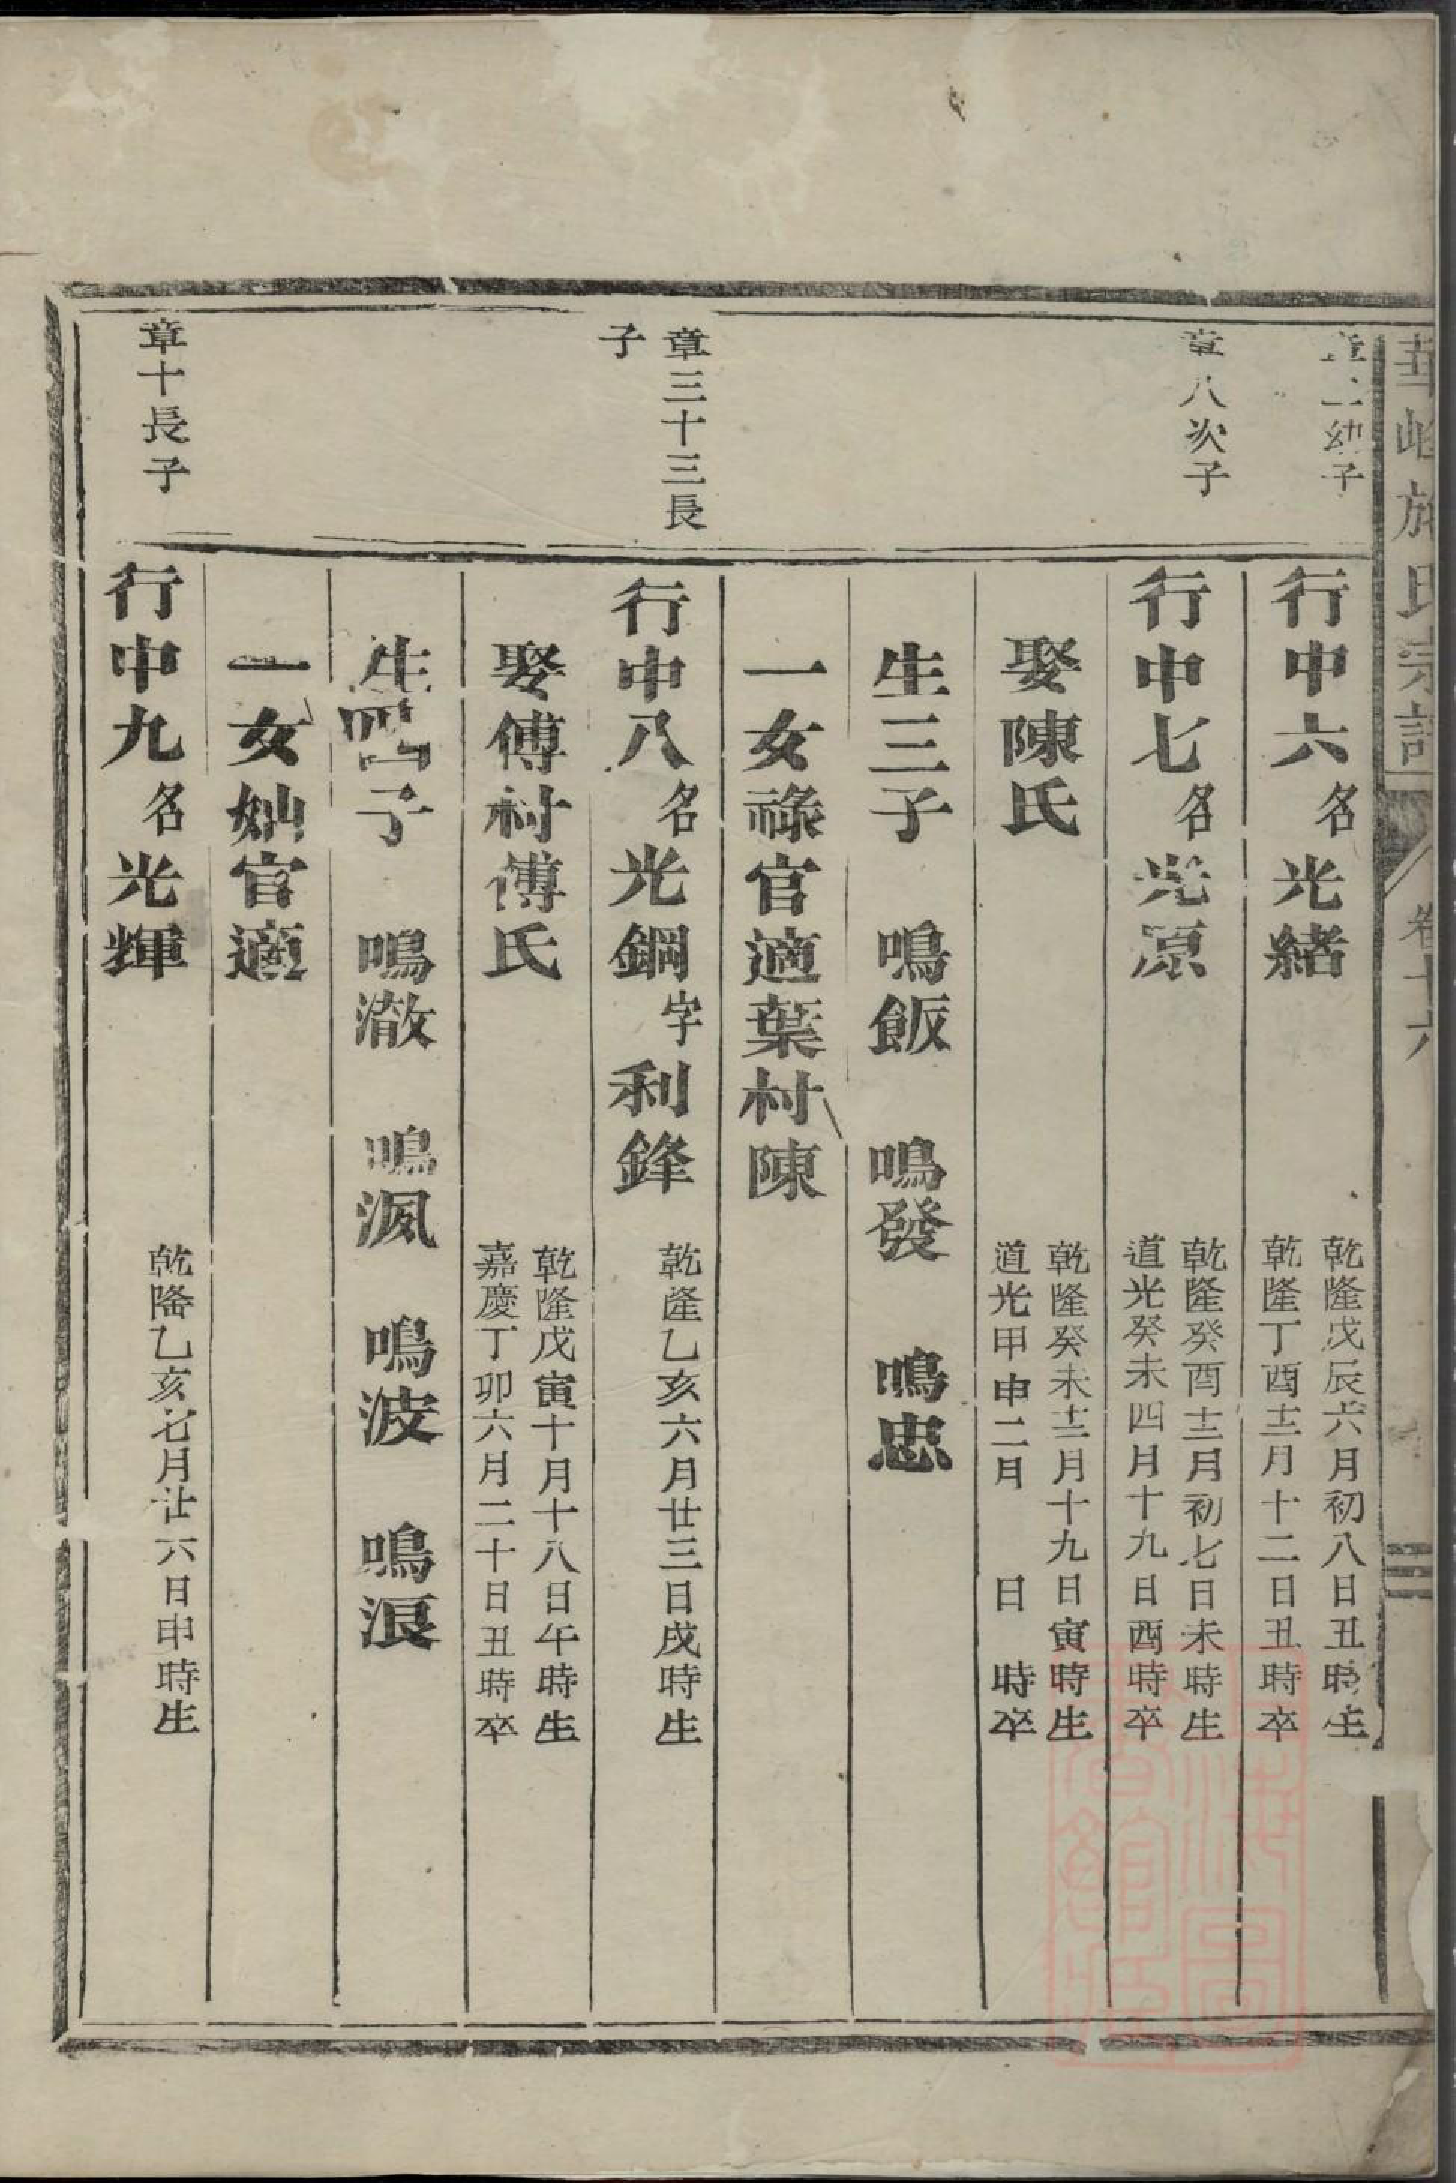 華峰施氏宗譜 卷十六
章 幼子
行中六名光緒 乾隆戊辰六月初八日丑時生
乾隆丁酉十二月十二日丑時卒
章八次子
行中七名光原 乾隆癸酉十二月初七日未時生
道光癸未四月十九日酉時卒
娶陳氏 乾隆癸未十二月十九日寅時生
道光甲申二月 日 時卒
生三子 鳴飯 鳴發 鳴忠
一女祿官適葉村陳
章三十三長
子
行中八名光鋼字利鋒 乾隆乙亥六月廿三日戌時生
娶傅村傅氏 乾隆戊寅十月十八日午時生
嘉慶丁卯六月二十日丑時卒
生四子 鳴澈 鳴渢 鳴波 鳴浪
一女妯官適
章十長子
行中九名光輝 乾隆乙亥七月廿六日申時生